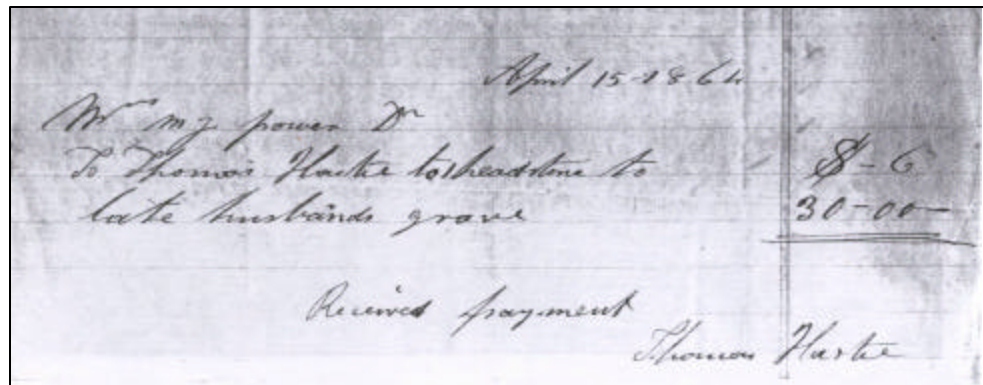 April 15-1864
Mrs m J power Dr
To Thomas Hartie to headstone to $-c
late husbands grave 30-00
Received payment
Thomas Hartie